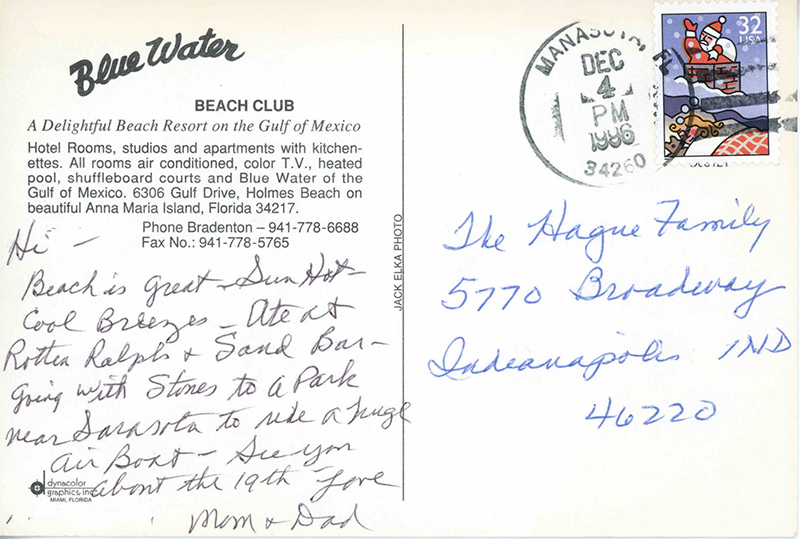 Blue Water
BEACH CLUB
A Delightful Beach Resort on the Gulf of Mexico
Hotel Rooms, studios and apartments with kitchen-
ettes. All rooms air conditioned, color T.V., heated
pool, shuffleboard courts and Blue Water of the
Gulf of Mexico. 6306 Gulf Drive, Holmes Beach on
beautiful Anna Maria Island, Florida 34217.
Phone Bradenton – 941-778-6688
Fax No.: 941-778-5765
Hi –
Beach is great – Sun Hot –
Cool Breezes – Ate at
Rotten Ralphs & Sand Bar –
going with Stones to a Park
near Sarasota to ride a huge
Air Boat – See you
about the 19th – Love
Mom & Dad
dynacolor
graphics, inc.
MIAMI, FLORIDA
JACK ELKA PHOTO
MANASOTA, FL
DEC
4
PM
1996
34260
32
USA
The Hague Family
5770 Broadway
Indeanapolis IND
46220